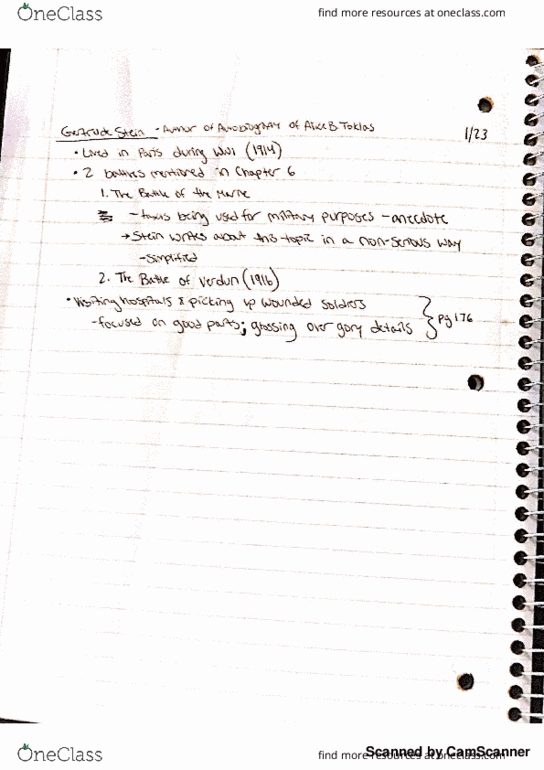 OneClass
find more resources at oneclass.com
1/23
Gertrude Stein - Author of Autobiography of Alice B Toklas
• Lived in Paris during WWI (1914)
• 2 battles mentioned in Chapter 6
1. The Battle of the Marne
- taxis being used for military purposes - anecdote
→ Stein writes about this topic in a non-serious way
- simplified
2. The Battle of Verdun (1916)
• Visiting hospitals & picking up wounded soldiers
- focused on good parts; glossing over gory details
} pg 176
OneClass
find more resources at oneclass.com
Scanned by CamScanner